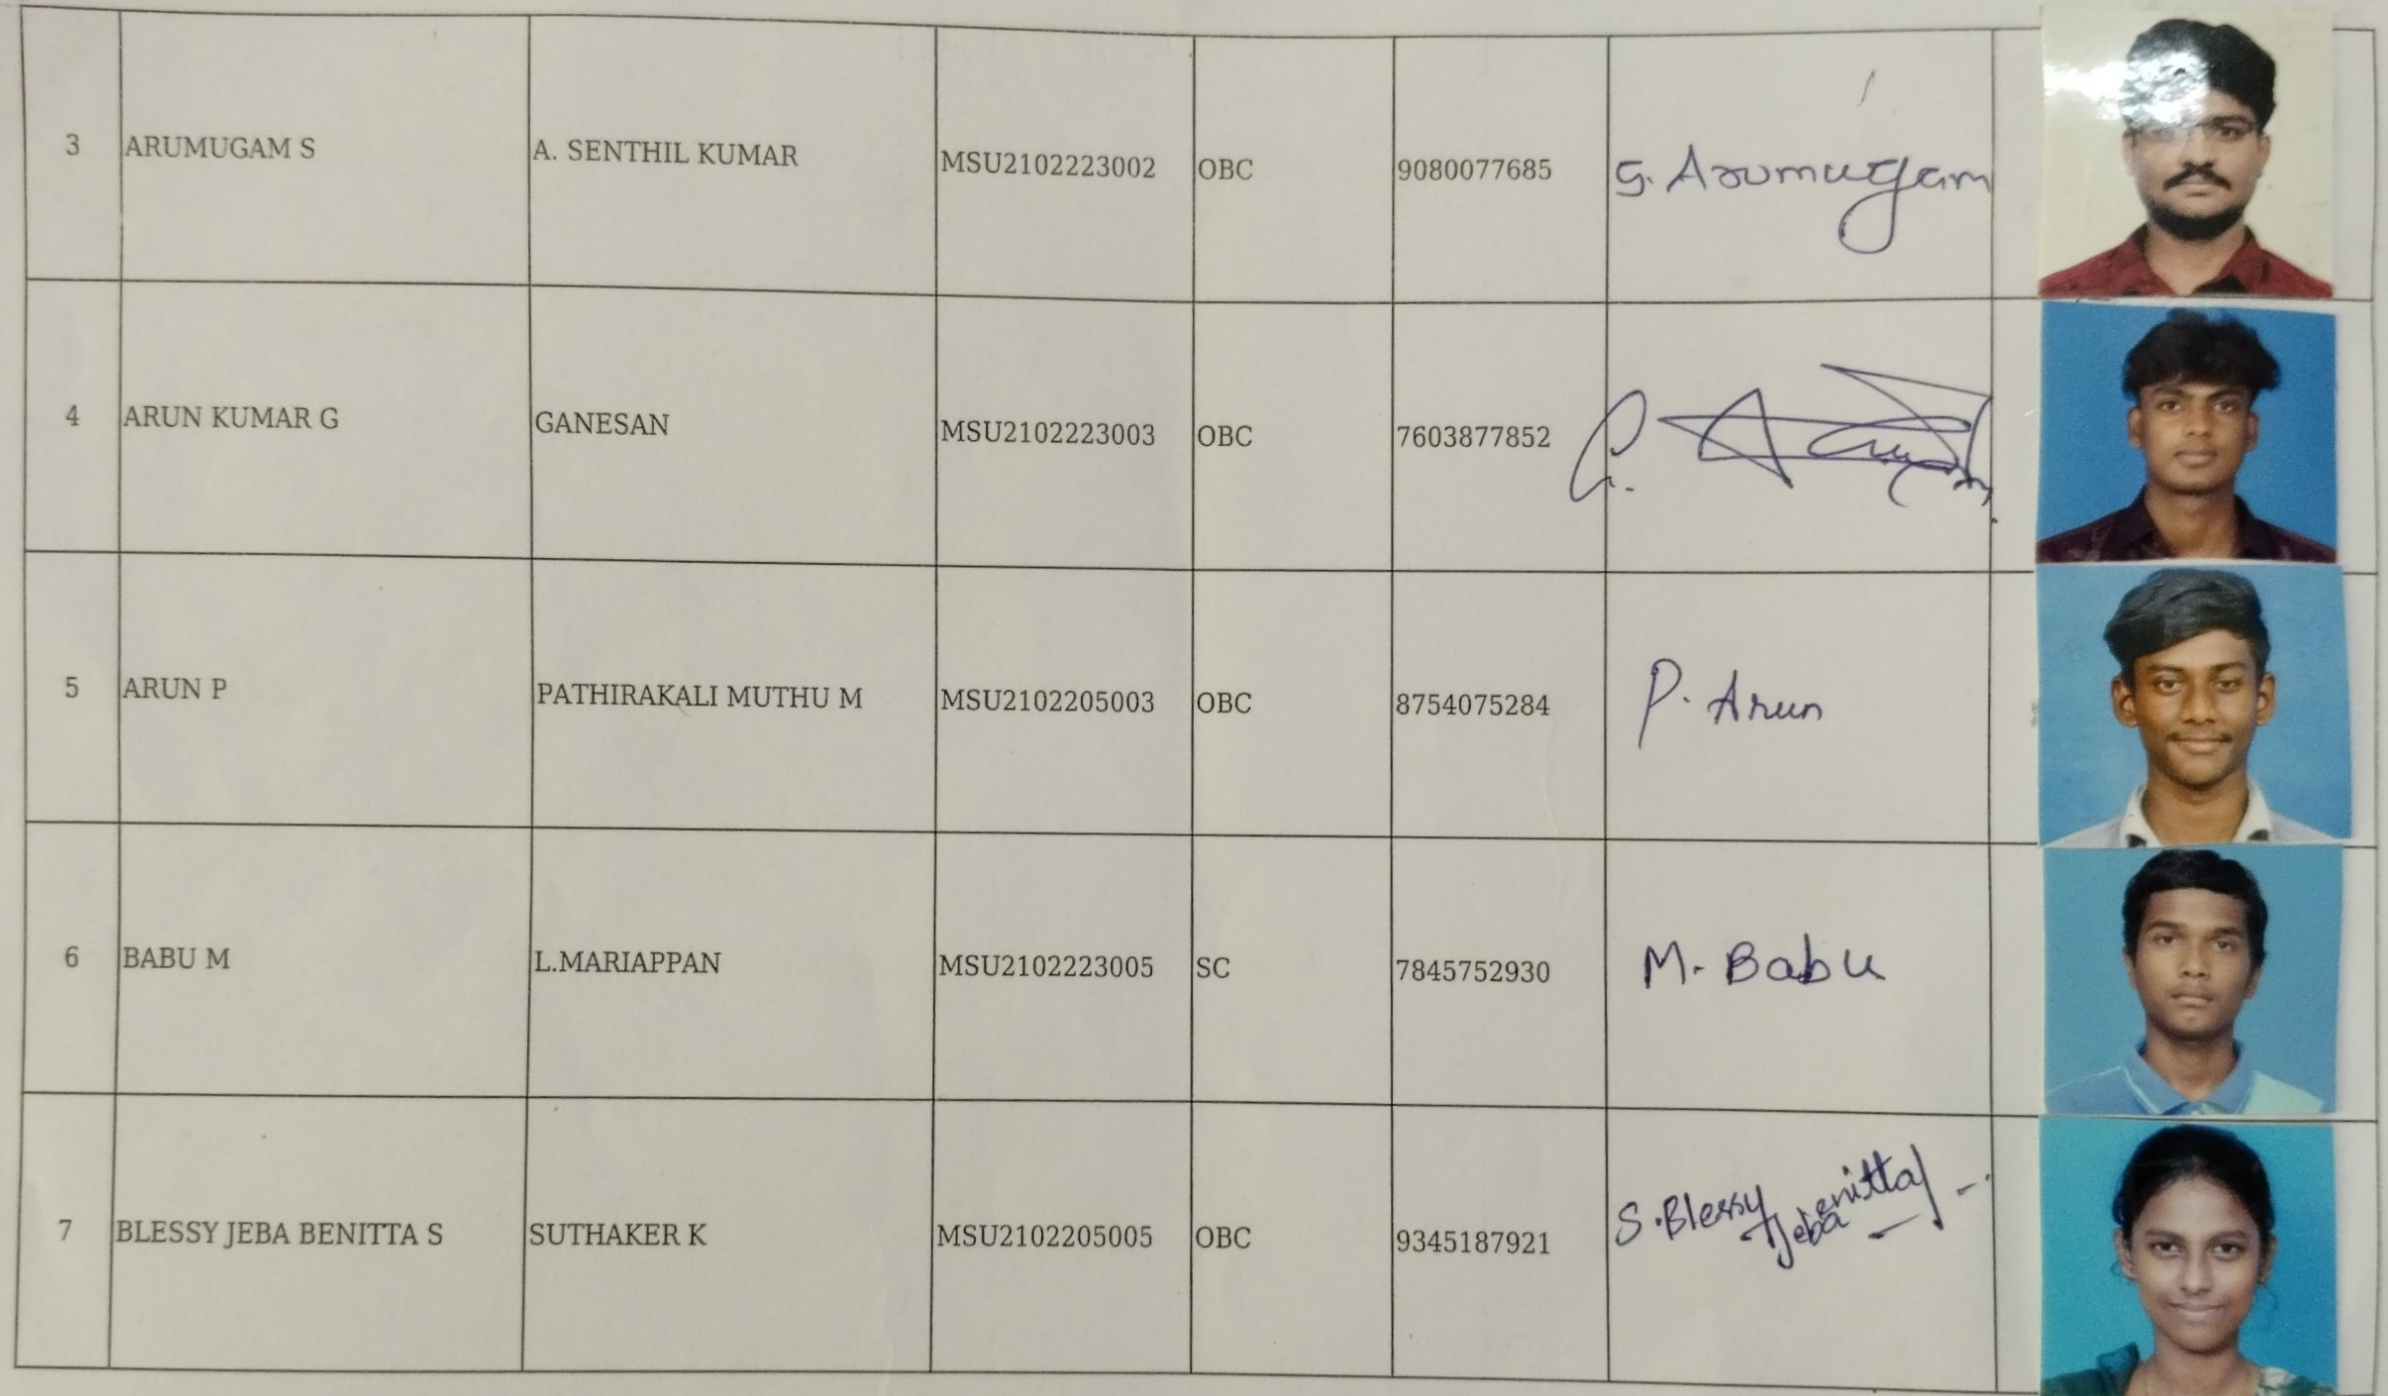 3 ARUMUGAM S A. SENTHIL KUMAR MSU2102223002 OBC 9080077685 S. Arumugam
4 ARUN KUMAR G GANESAN MSU2102223003 OBC 7603877852 G.
5 ARUN P PATHIRAKALI MUTHU M MSU2102205003 OBC 8754075284 P. Arun
6 BABU M L.MARIAPPAN MSU2102223005 SC 7845752930 M. Babu
7 BLESSY JEBA BENITTA S SUTHAKER K MSU2102205005 OBC 9345187921 S. Blessy Jeba Benitta